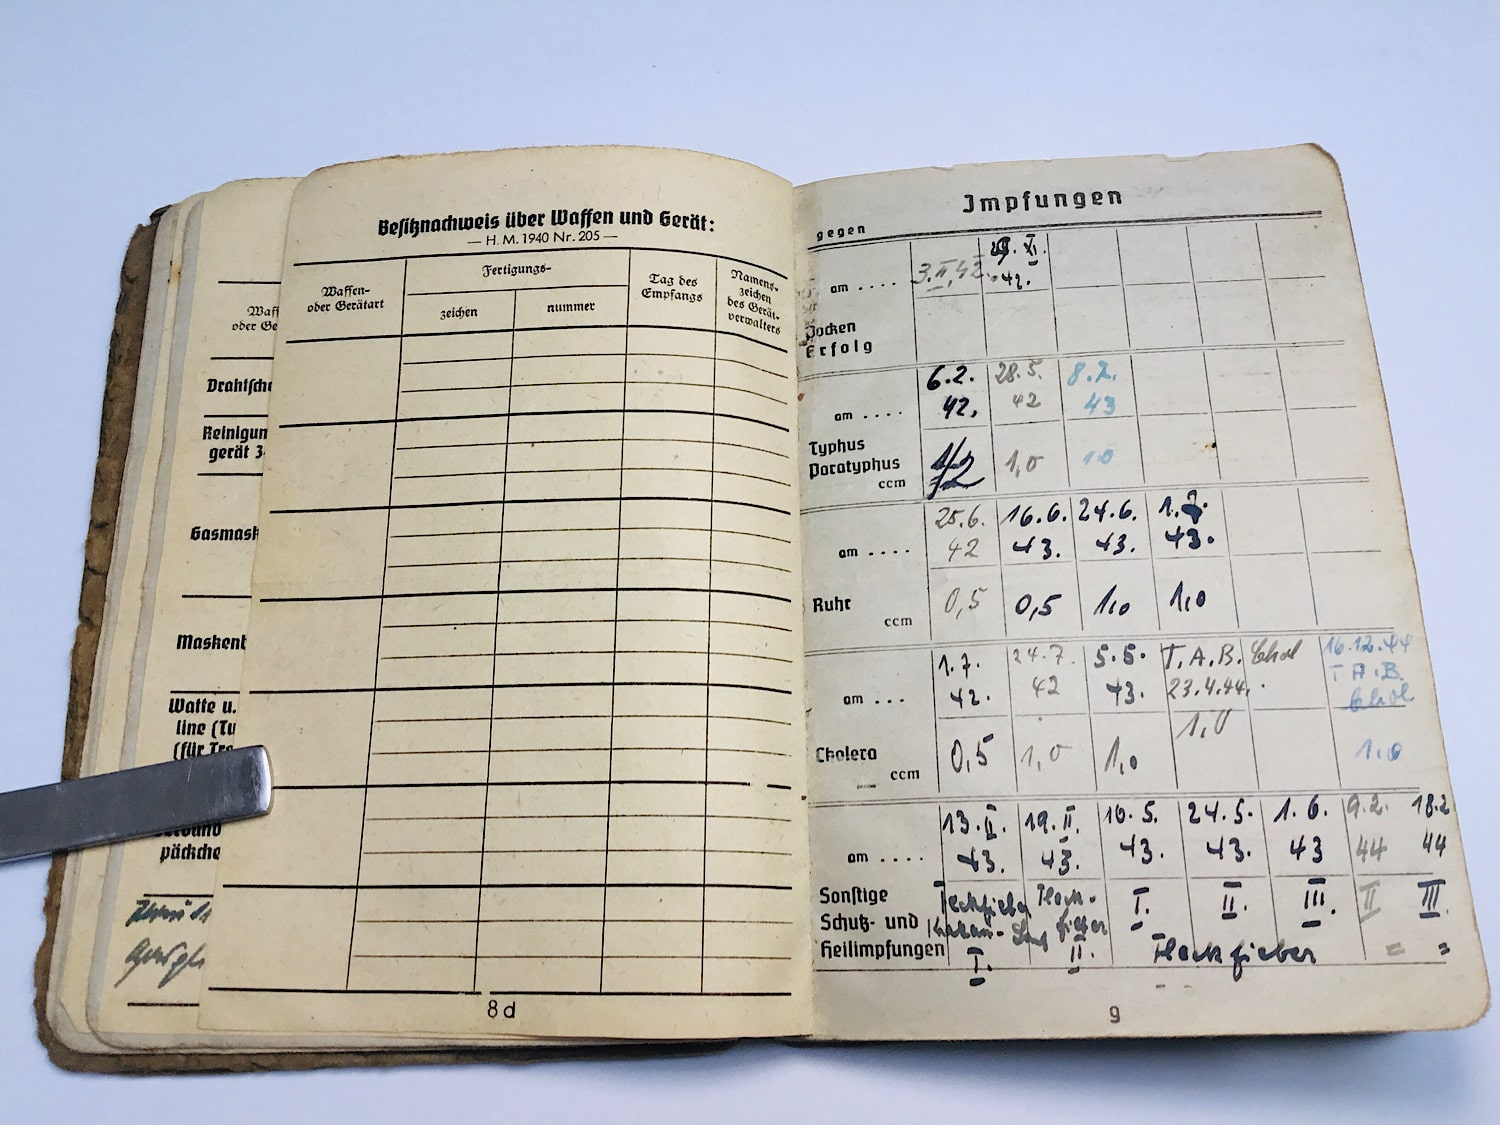 Waff
oder Ge
Drahtsche
Reinigun
gerät 3
Gasmask
Maskenb
Watte u.
line (Tu
(für Tro
päckche
Besitznachweis über Waffen und Gerät:
— H. M. 1940 Nr. 205 —
Waffen-
oder Gerätart
Fertigungs-
zeichen
nummer
Tag des
Empfangs
Namens-
zeichen
des Gerät-
verwalters
8d
Impfungen
gegen
am . . . . 3. II. 42. 29. XI. 42.
Pocken
Erfolg
6.2. 28.5. 8.2.
am . . . . 42. 42 43
Typhus
Paratyphus
ccm 1/2 1,0 1,0
25.6. 16.6. 24.6. 1.7.
am . . . . 42 43. 43. 43.
Ruhr
ccm 0,5 0,5 1,0 1,0
1.7. 24.7. 5.5. T.A.B. Chol 16.12.44
am . . . 42. 42 43. 23.4.44. T.A.B.
Chol
Cholera
ccm 0,5 1,0 1,0 1,0 1,0
13.II. 19.II. 10.5. 24.5. 1.6. 9.2. 18.2
am . . . . 43. 43. 43. 43. 43 44 44
Sonstige
Schutz- und
Heilimpfungen
Fleckfieber Fleck-
fieber
I. II. I. II. III. II III
Fleckfieber = =
9